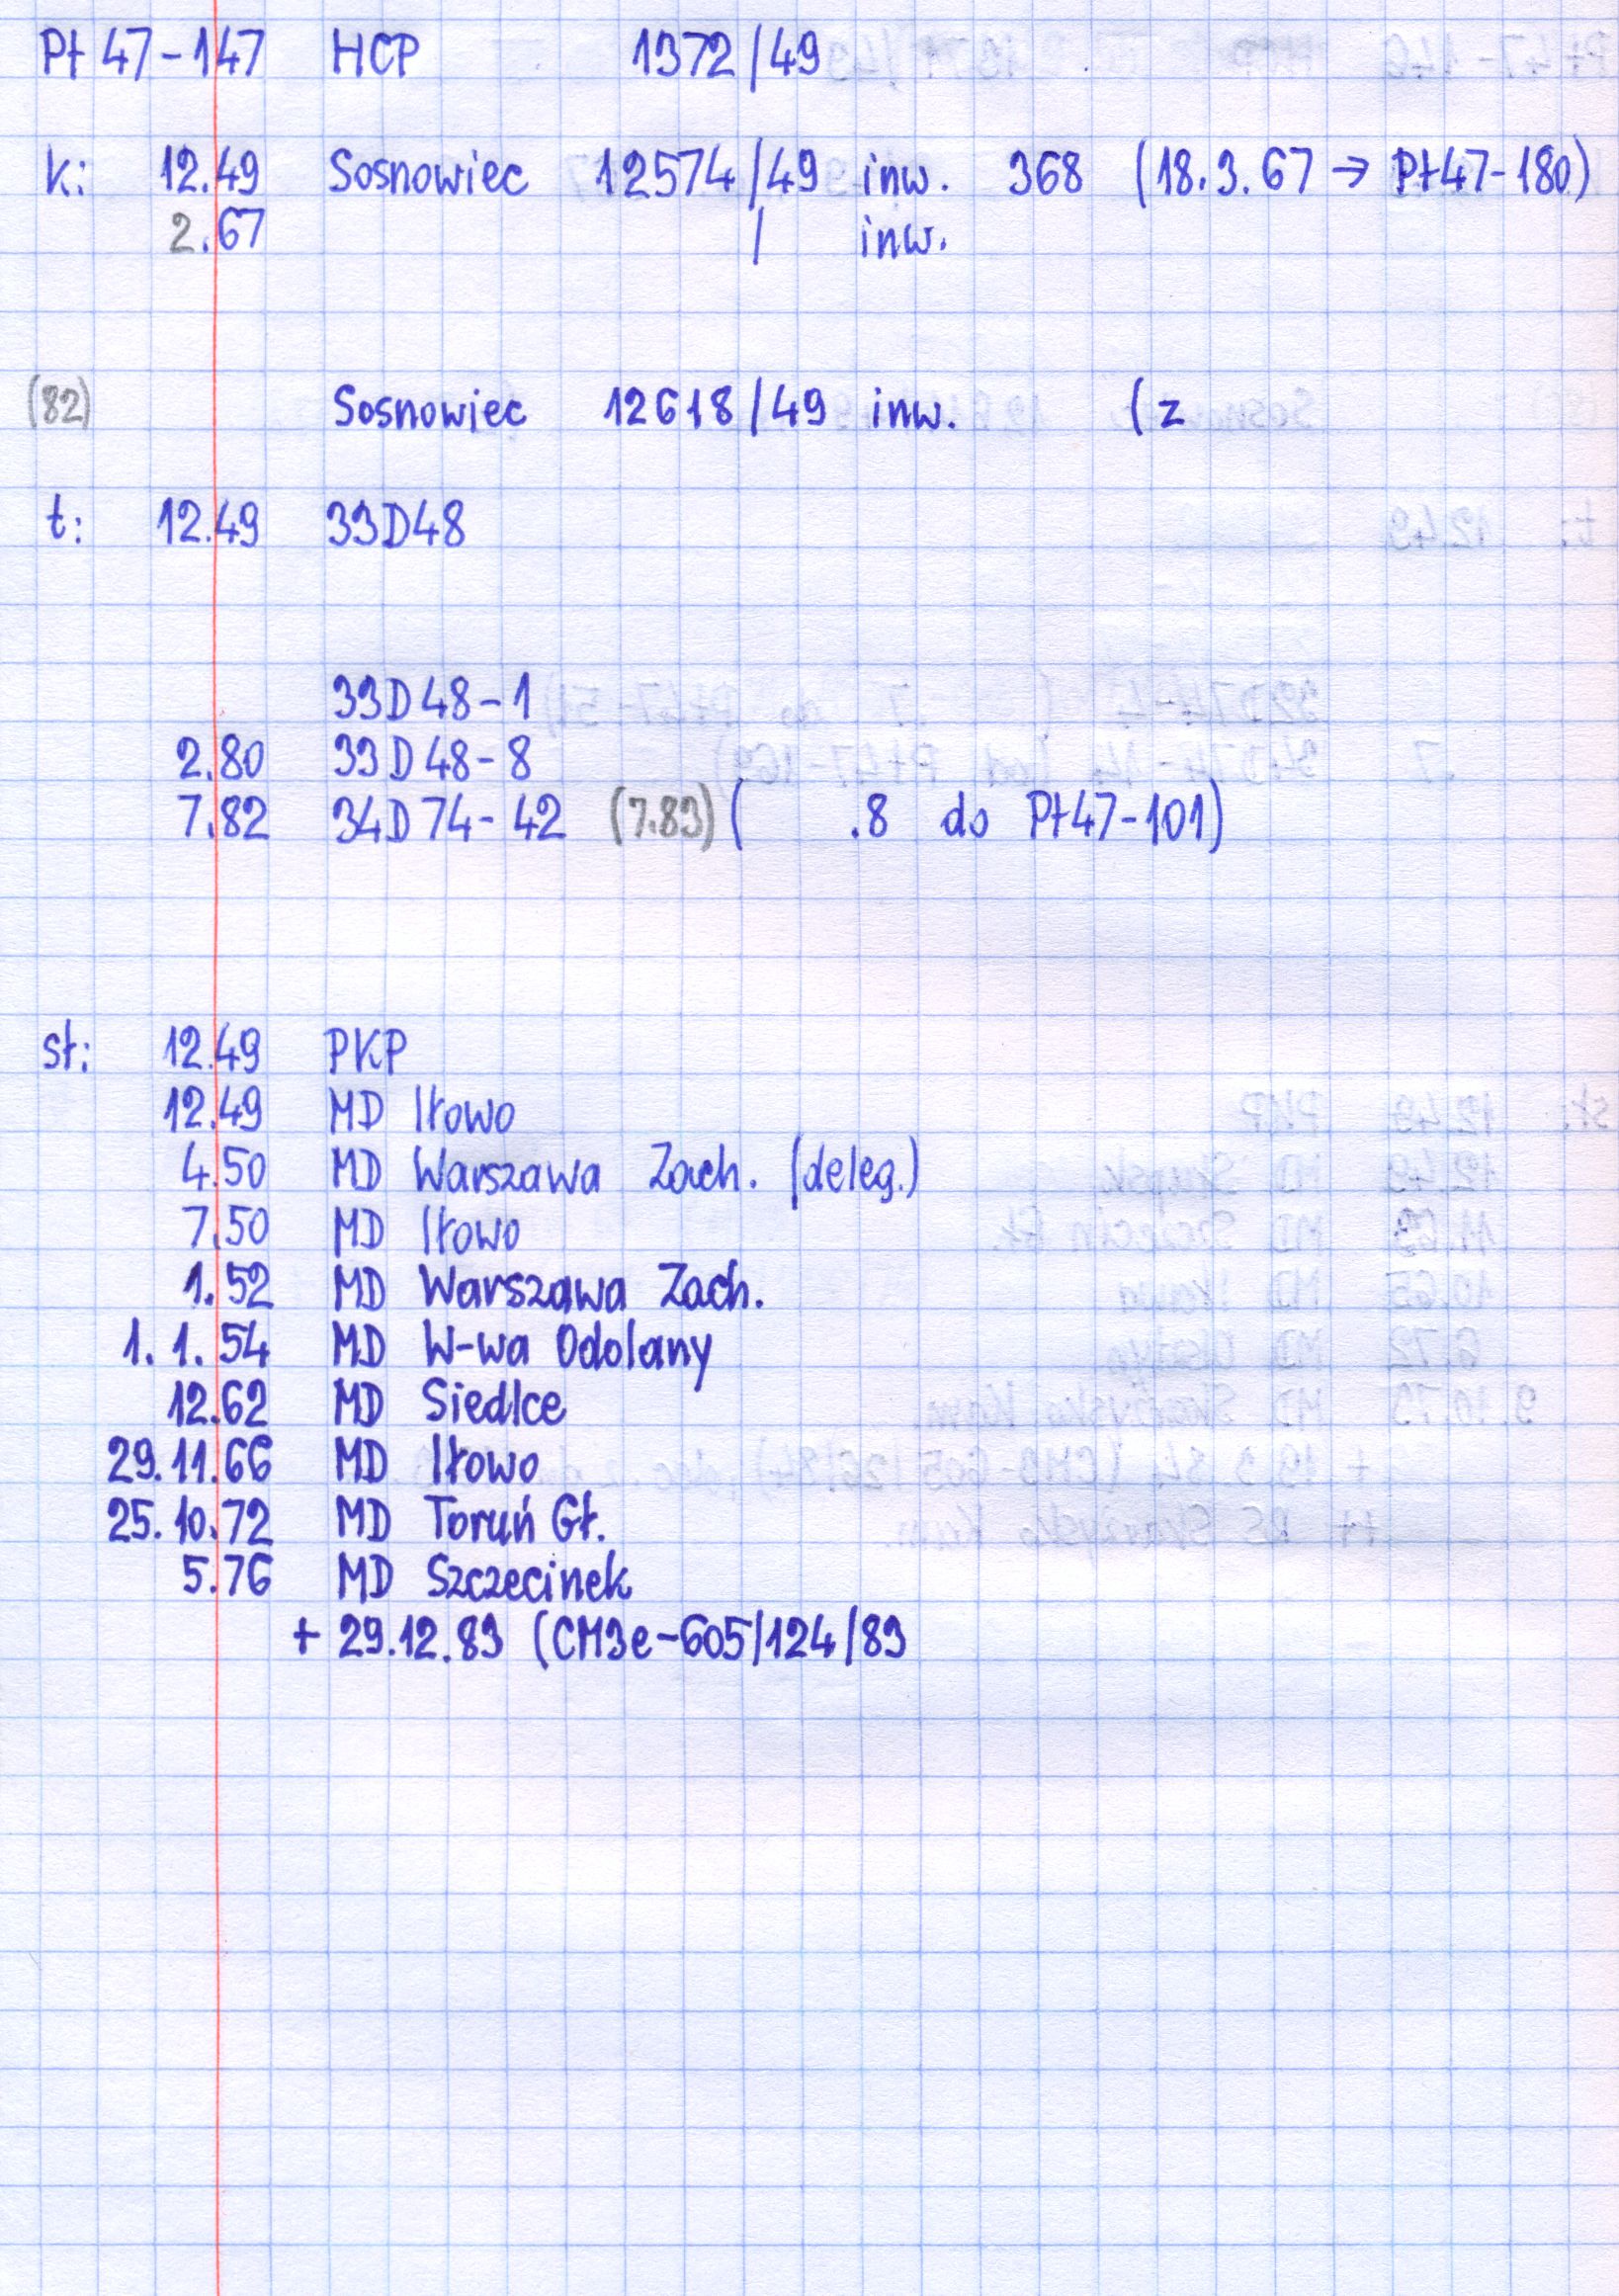 Pt 47-147 HCP 1372/49
k: 12.49 Sosnowiec 12574/49 inw. 368 (18.3.67 → Pt47-180)
2.67 / inw.
(82) Sosnowiec 12618/49 inw. (z
t: 12.49 33D48
33D48-1
2.80 33D48-8
7.82 34D74-42 (7.83) ( .8 do Pt47-101)
st: 12.49 PKP
12.49 MD Iłowo
4.50 MD Warszawa Zach. (deleg.)
7.50 MD Iłowo
1.52 MD Warszawa Zach.
1.1.54 MD W-wa Odolany
12.62 MD Siedlce
29.11.66 MD Iłowo
25.10.72 MD Toruń Gł.
5.76 MD Szczecinek
+ 29.12.83 (CM3e-605/124/83